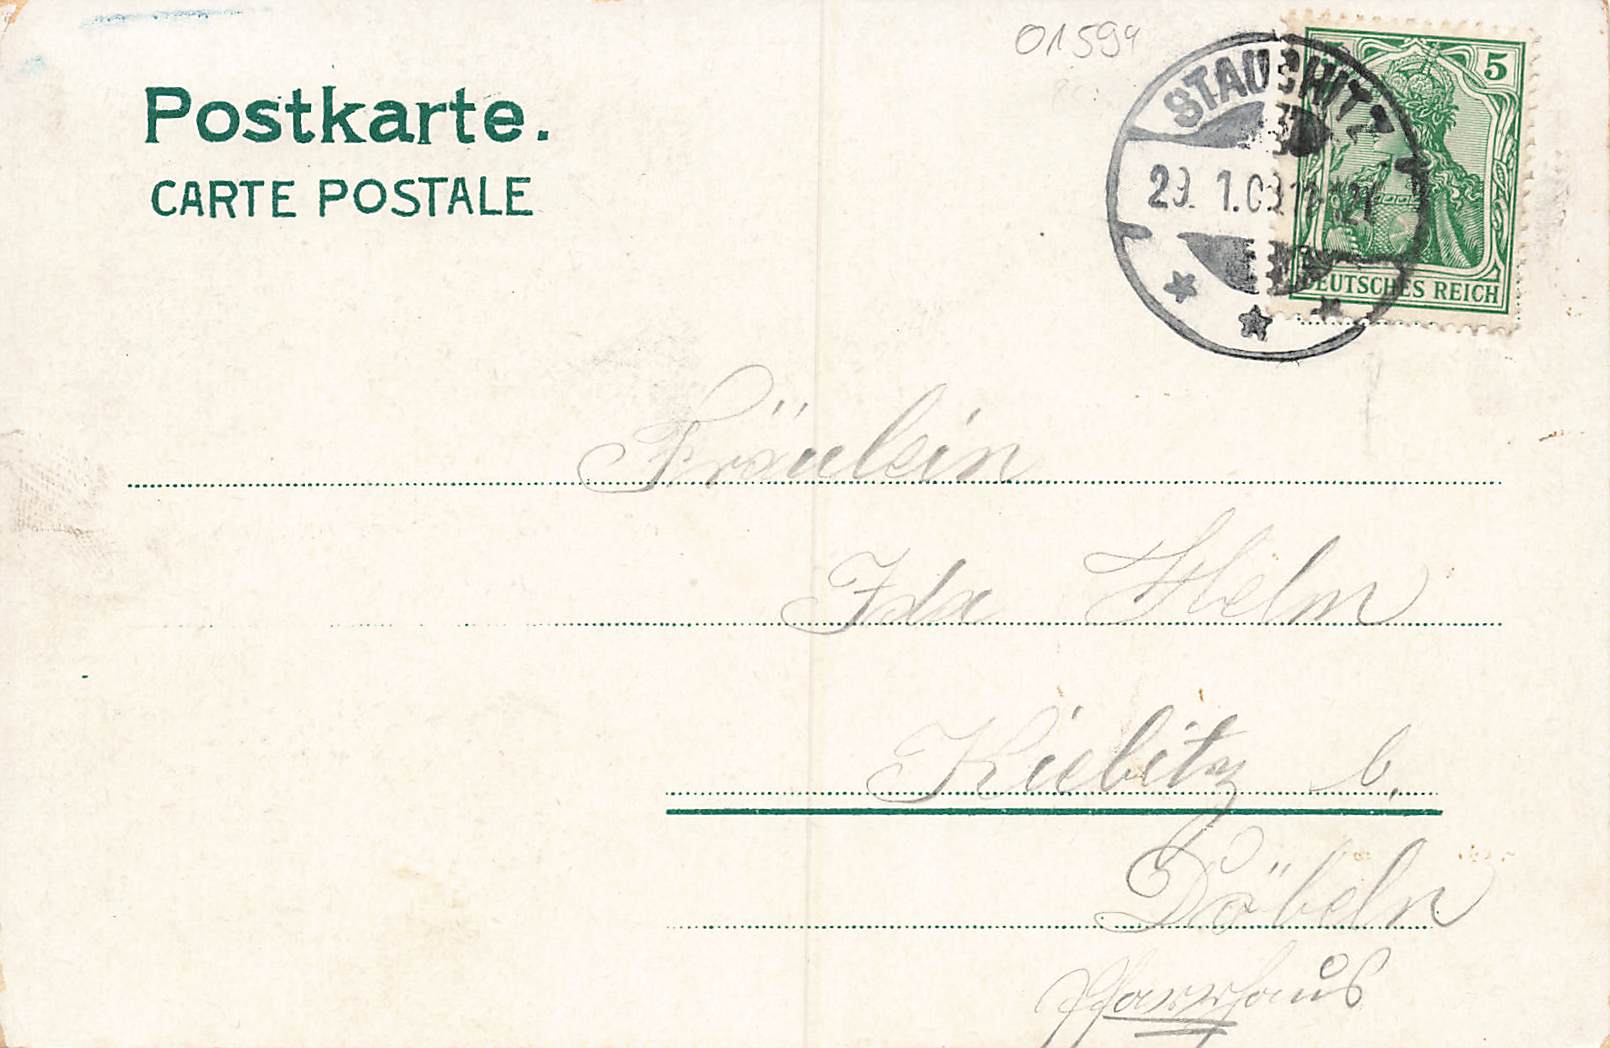 01594
Postkarte.
CARTE POSTALE
STAUCHITZ
5
DEUTSCHES REICH
Fräulein
Ida Helm
Kiebitz b.
Döbeln
Pfarrhaus